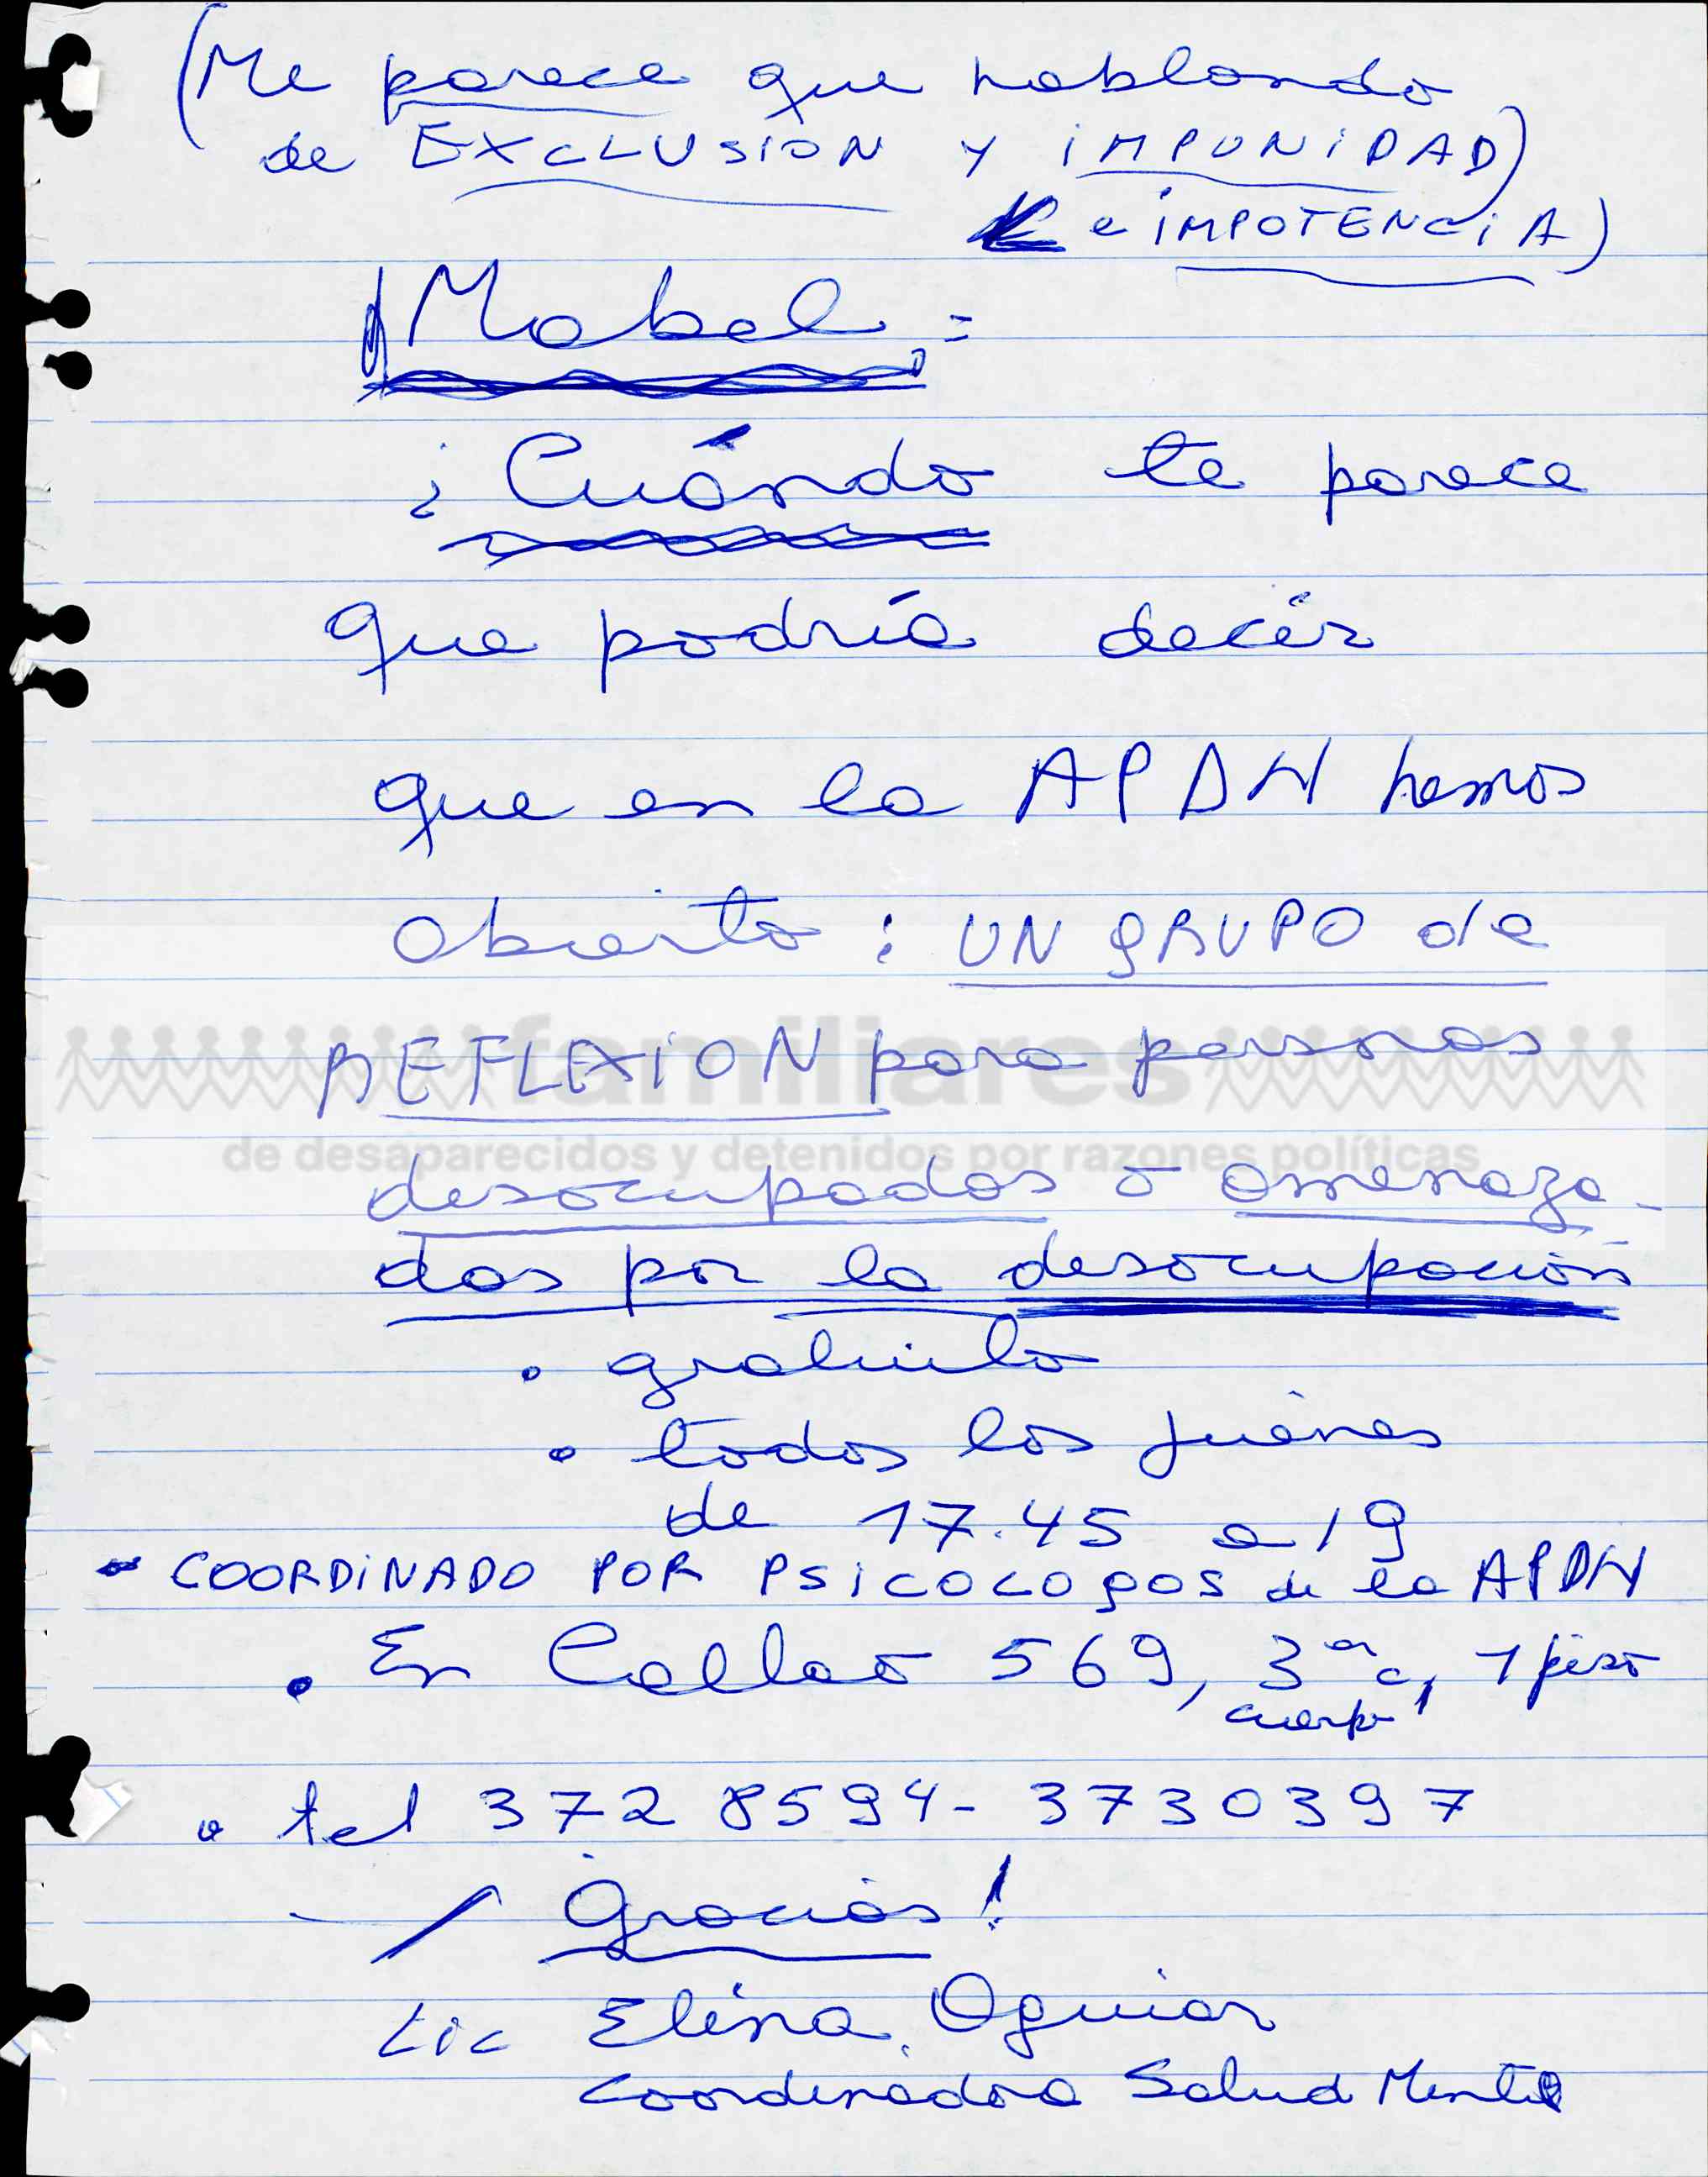 (Me parece que hablando
de EXCLUSION y iMPUNiDAD)
e iMPOTENCiA)
Mabel:
¿Cuándo te parece
que podría decir
que en la APDH hemos
abierto: UN gRUPO de
REFLEXiON para personas
familiares
de desaparecidos y detenidos por razones políticas
desocupadas o amenaza-
das por la desocupación
• gratuito
• todos los jueves
de 17.45 a 19
- COORDiNADO POR PSiCOLOgOS de la APDH
• En Callao 569, 3er c, 1 piso
cuerpo
• tel 372 8594 - 3730397
Gracias!
Lic Elina Aguiar
Coordinadora Salud Mental